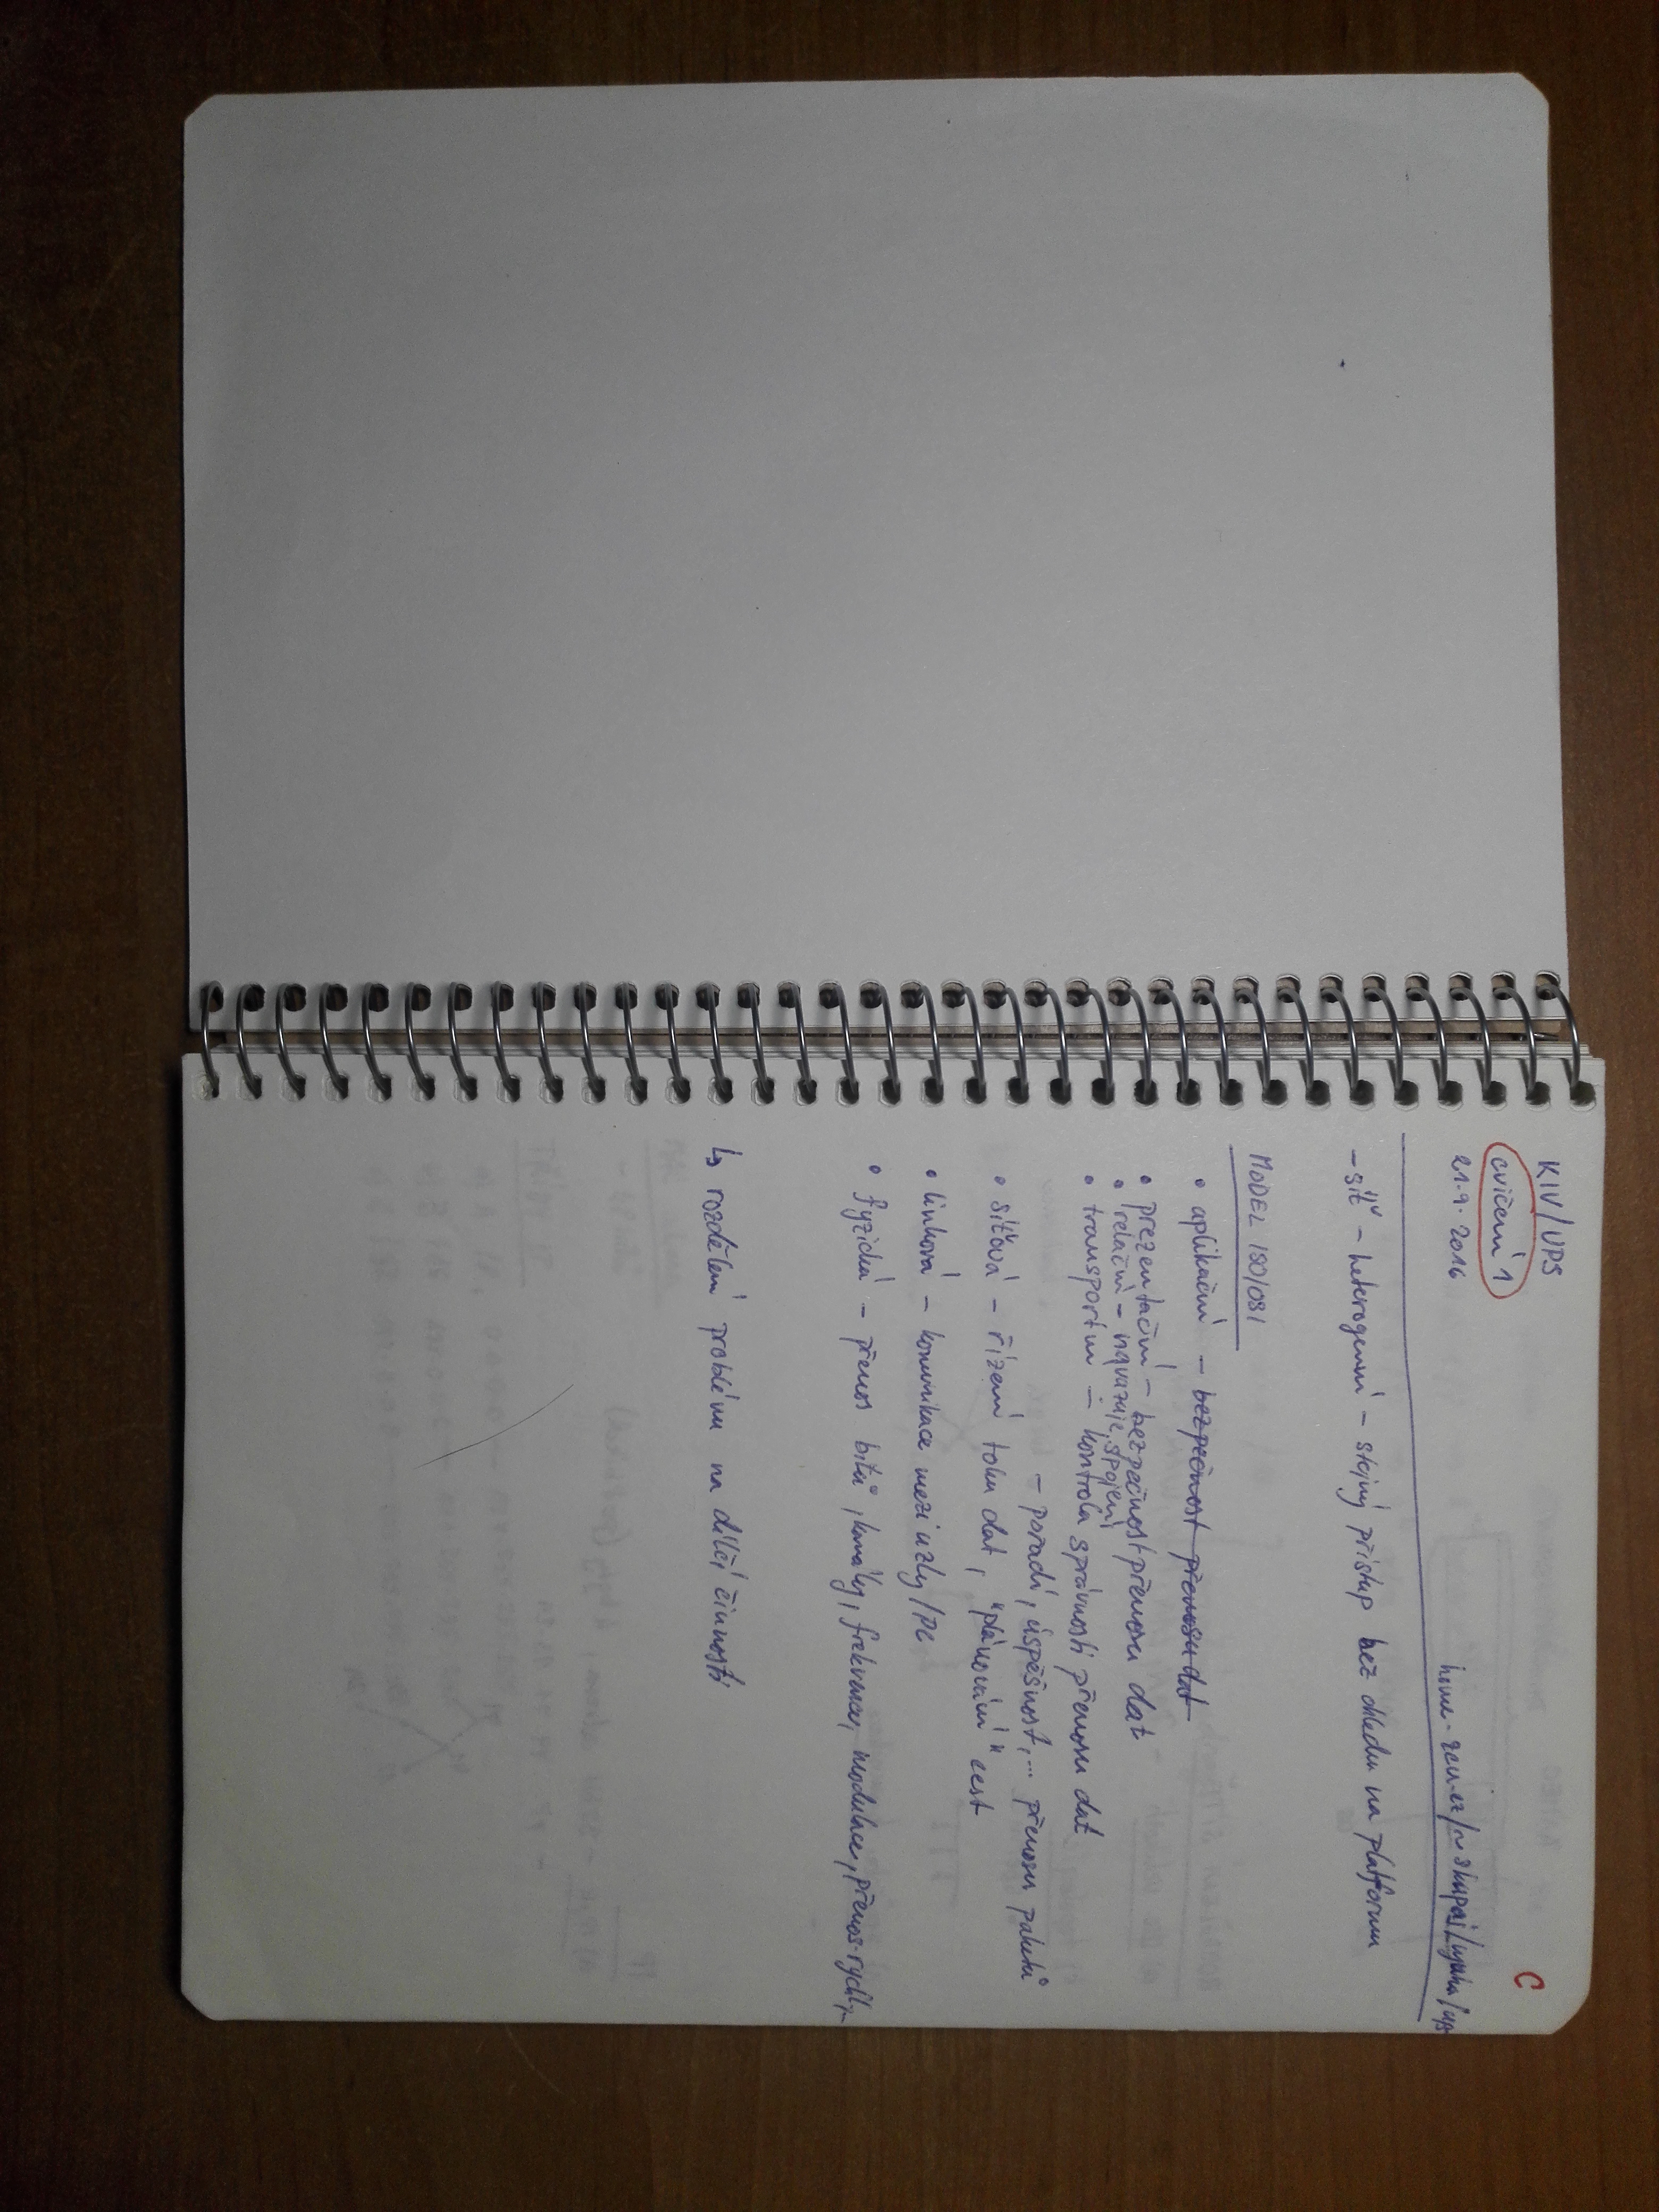 KIV/UPS
C
cvičení 1
21.9.2016
home.zcu.cz/~skupaj/vyuka/ups
- síť - heterogenní - stejný přístup bez ohledu na platformu
MODEL ISO/OSI
• aplikační - bezpečnost přenosu dat
• prezentační - bezpečnost přenosu dat
• relační - navazuje spojení
• transportní - kontrola správnosti přenosu dat
- pořadí, úspěšnost,... přenosu paketů
• síťová - řízení toku dat, "plánování" cest
• linková - komunikace mezi uzly/PC
• fyzická - přenos bitů, kanály, frekvence, modulace, přenos. rychl.
↳ rozdělení problému na dílčí činnosti